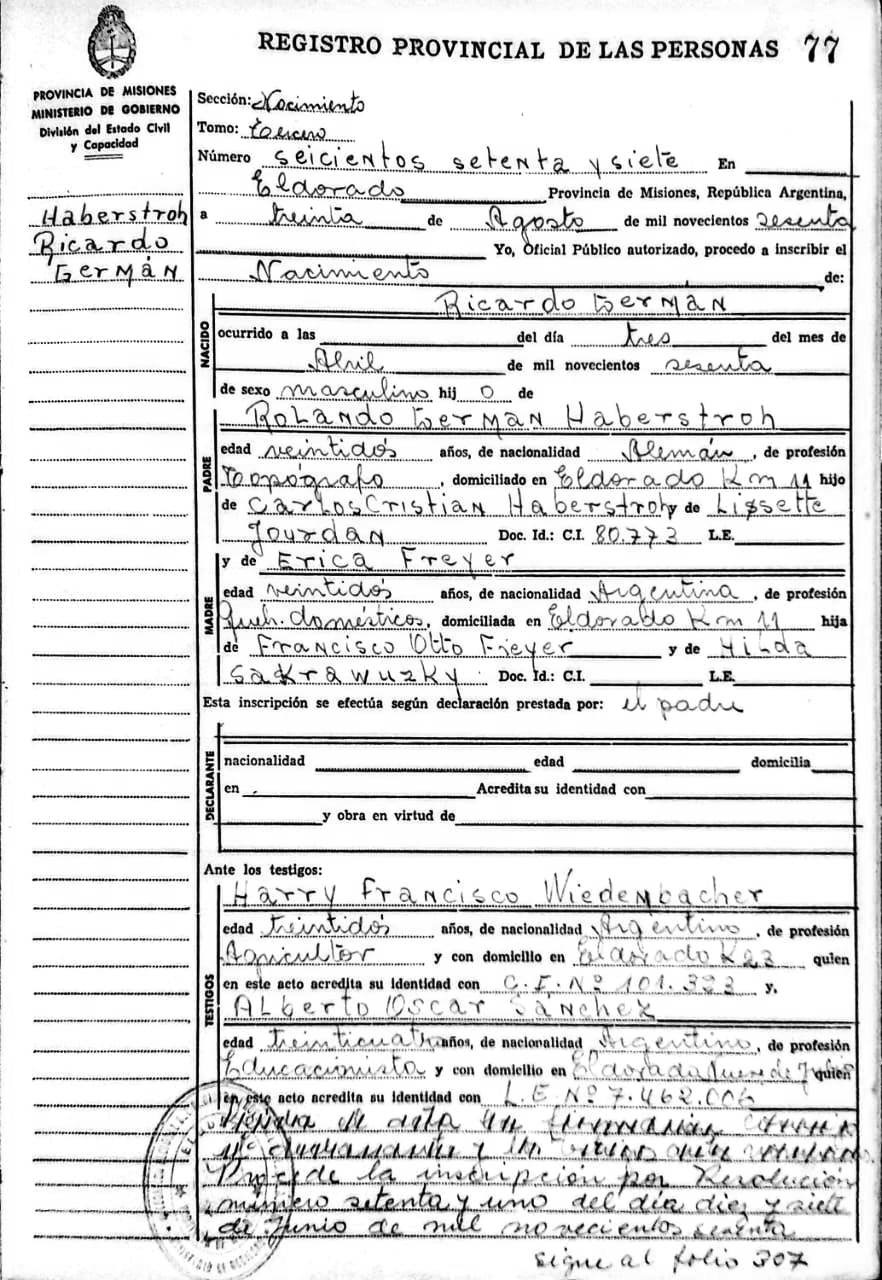 REGISTRO PROVINCIAL DE LAS PERSONAS 77
PROVINCIA DE MISIONES
MINISTERIO DE GOBIERNO
División del Estado Civil
y Capacidad
Haberstroh
Ricardo
GerMáN
Sección: Nacimiento
Tomo: Tercero
Número seicientos setenta y siete En
Eldorado Provincia de Misiones, República Argentina,
a treinta de Agosto de mil novecientos sesenta
Yo, Oficial Público autorizado, procedo a inscribir el
Nacimiento de:
Ricardo GerMáN
NACIDO
ocurrido a las del día tres del mes de
Abril de mil novecientos sesenta
de sexo masculino hij o de
RoLANdo GerMáN Haberstroh
PADRE
edad veintidós años, de nacionalidad Alemán, de profesión
Topógrafo, domiciliado en Eldorado Km 11 hijo
de CarLos CristiaN Haberstroh y de Lissette
JourdaN Doc. Id.: C.I. 80.773 L.E.
y de Erica Freyer
MADRE
edad veintidós años, de nacionalidad Argentina, de profesión
Queh. domésticos, domiciliada en Eldorado Km 11 hija
de FraNcisco Otto Freyer y de HiLda
SakrawuzKy Doc. Id.: C.I. L.E.
Esta inscripción se efectúa según declaración prestada por: el padre
DECLARANTE
nacionalidad edad domicilia
en Acredita su identidad con
y obra en virtud de
Ante los testigos:
TESTIGOS
Harry FraNcisco WiedeNbacher
edad treintidós años, de nacionalidad Argentino, de profesión
Agricultor y con domicilio en Eldorado K 23 quien
en este acto acredita su identidad con C.I. Nº 101.323 y,
ALberto Oscar SáNchez
edad treinticuatro años, de nacionalidad Argentino, de profesión
Educacionista y con domicilio en Eldorado Nueve de Julio quien
en este acto acredita su identidad con L.E Nº 7.462.006
Procede la inscripción por Resolución
número setenta y uno del día diez y siete
de Junio de mil novecientos sesenta
sigue al folio 307